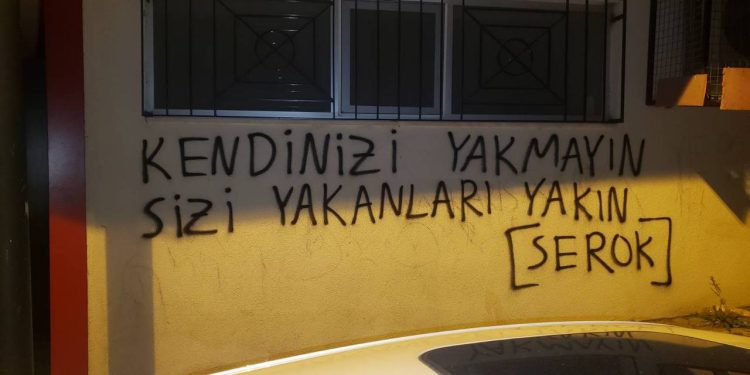 KENDİNİZİ YAKMAYIN
SİZİ YAKANLARI YAKIN
[SEROK]